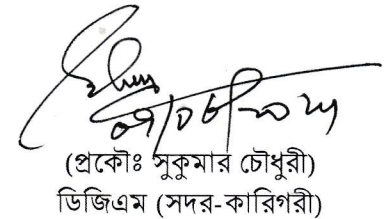 (প্রকৌঃ সুকুমার চৌধুরী)
ডিজিএম (সদর-কারিগরী)